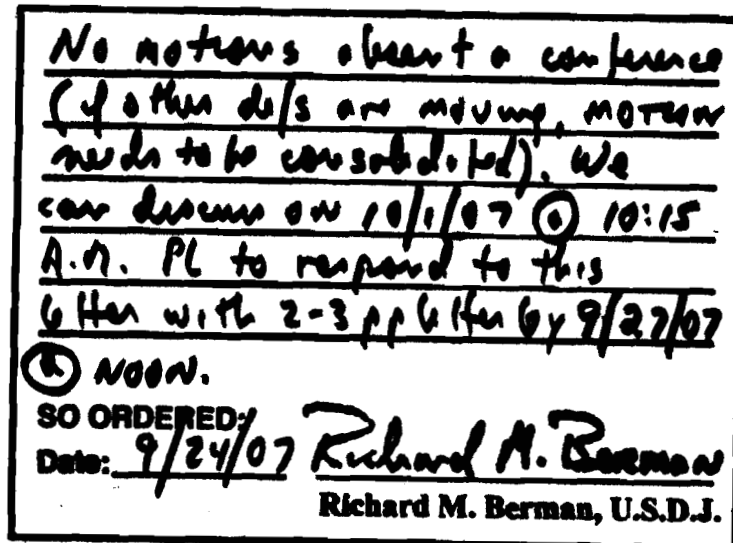 No motions absent a conference
(if other de/s are moving, motion
needs to be consolidated). We
can discuss on 10/1/07 @ 10:15
A.M. PL to respond to this
letter with 2-3 pp letter by 9/27/07
@ NOON.
SO ORDERED:
Date: 9/24/07 Richard M. Berman
Richard M. Berman, U.S.D.J.